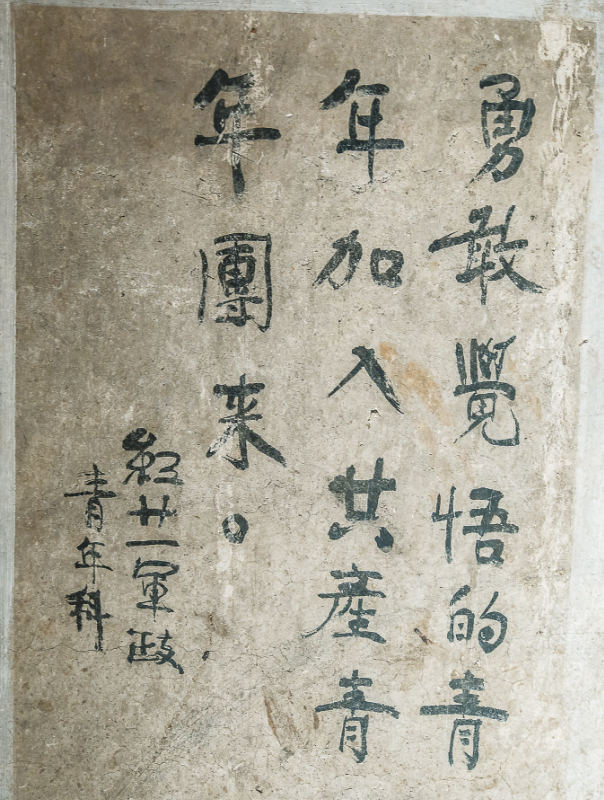 勇敢覺悟的青
年加入共產青
年團来。
紅廿一軍政
青年科